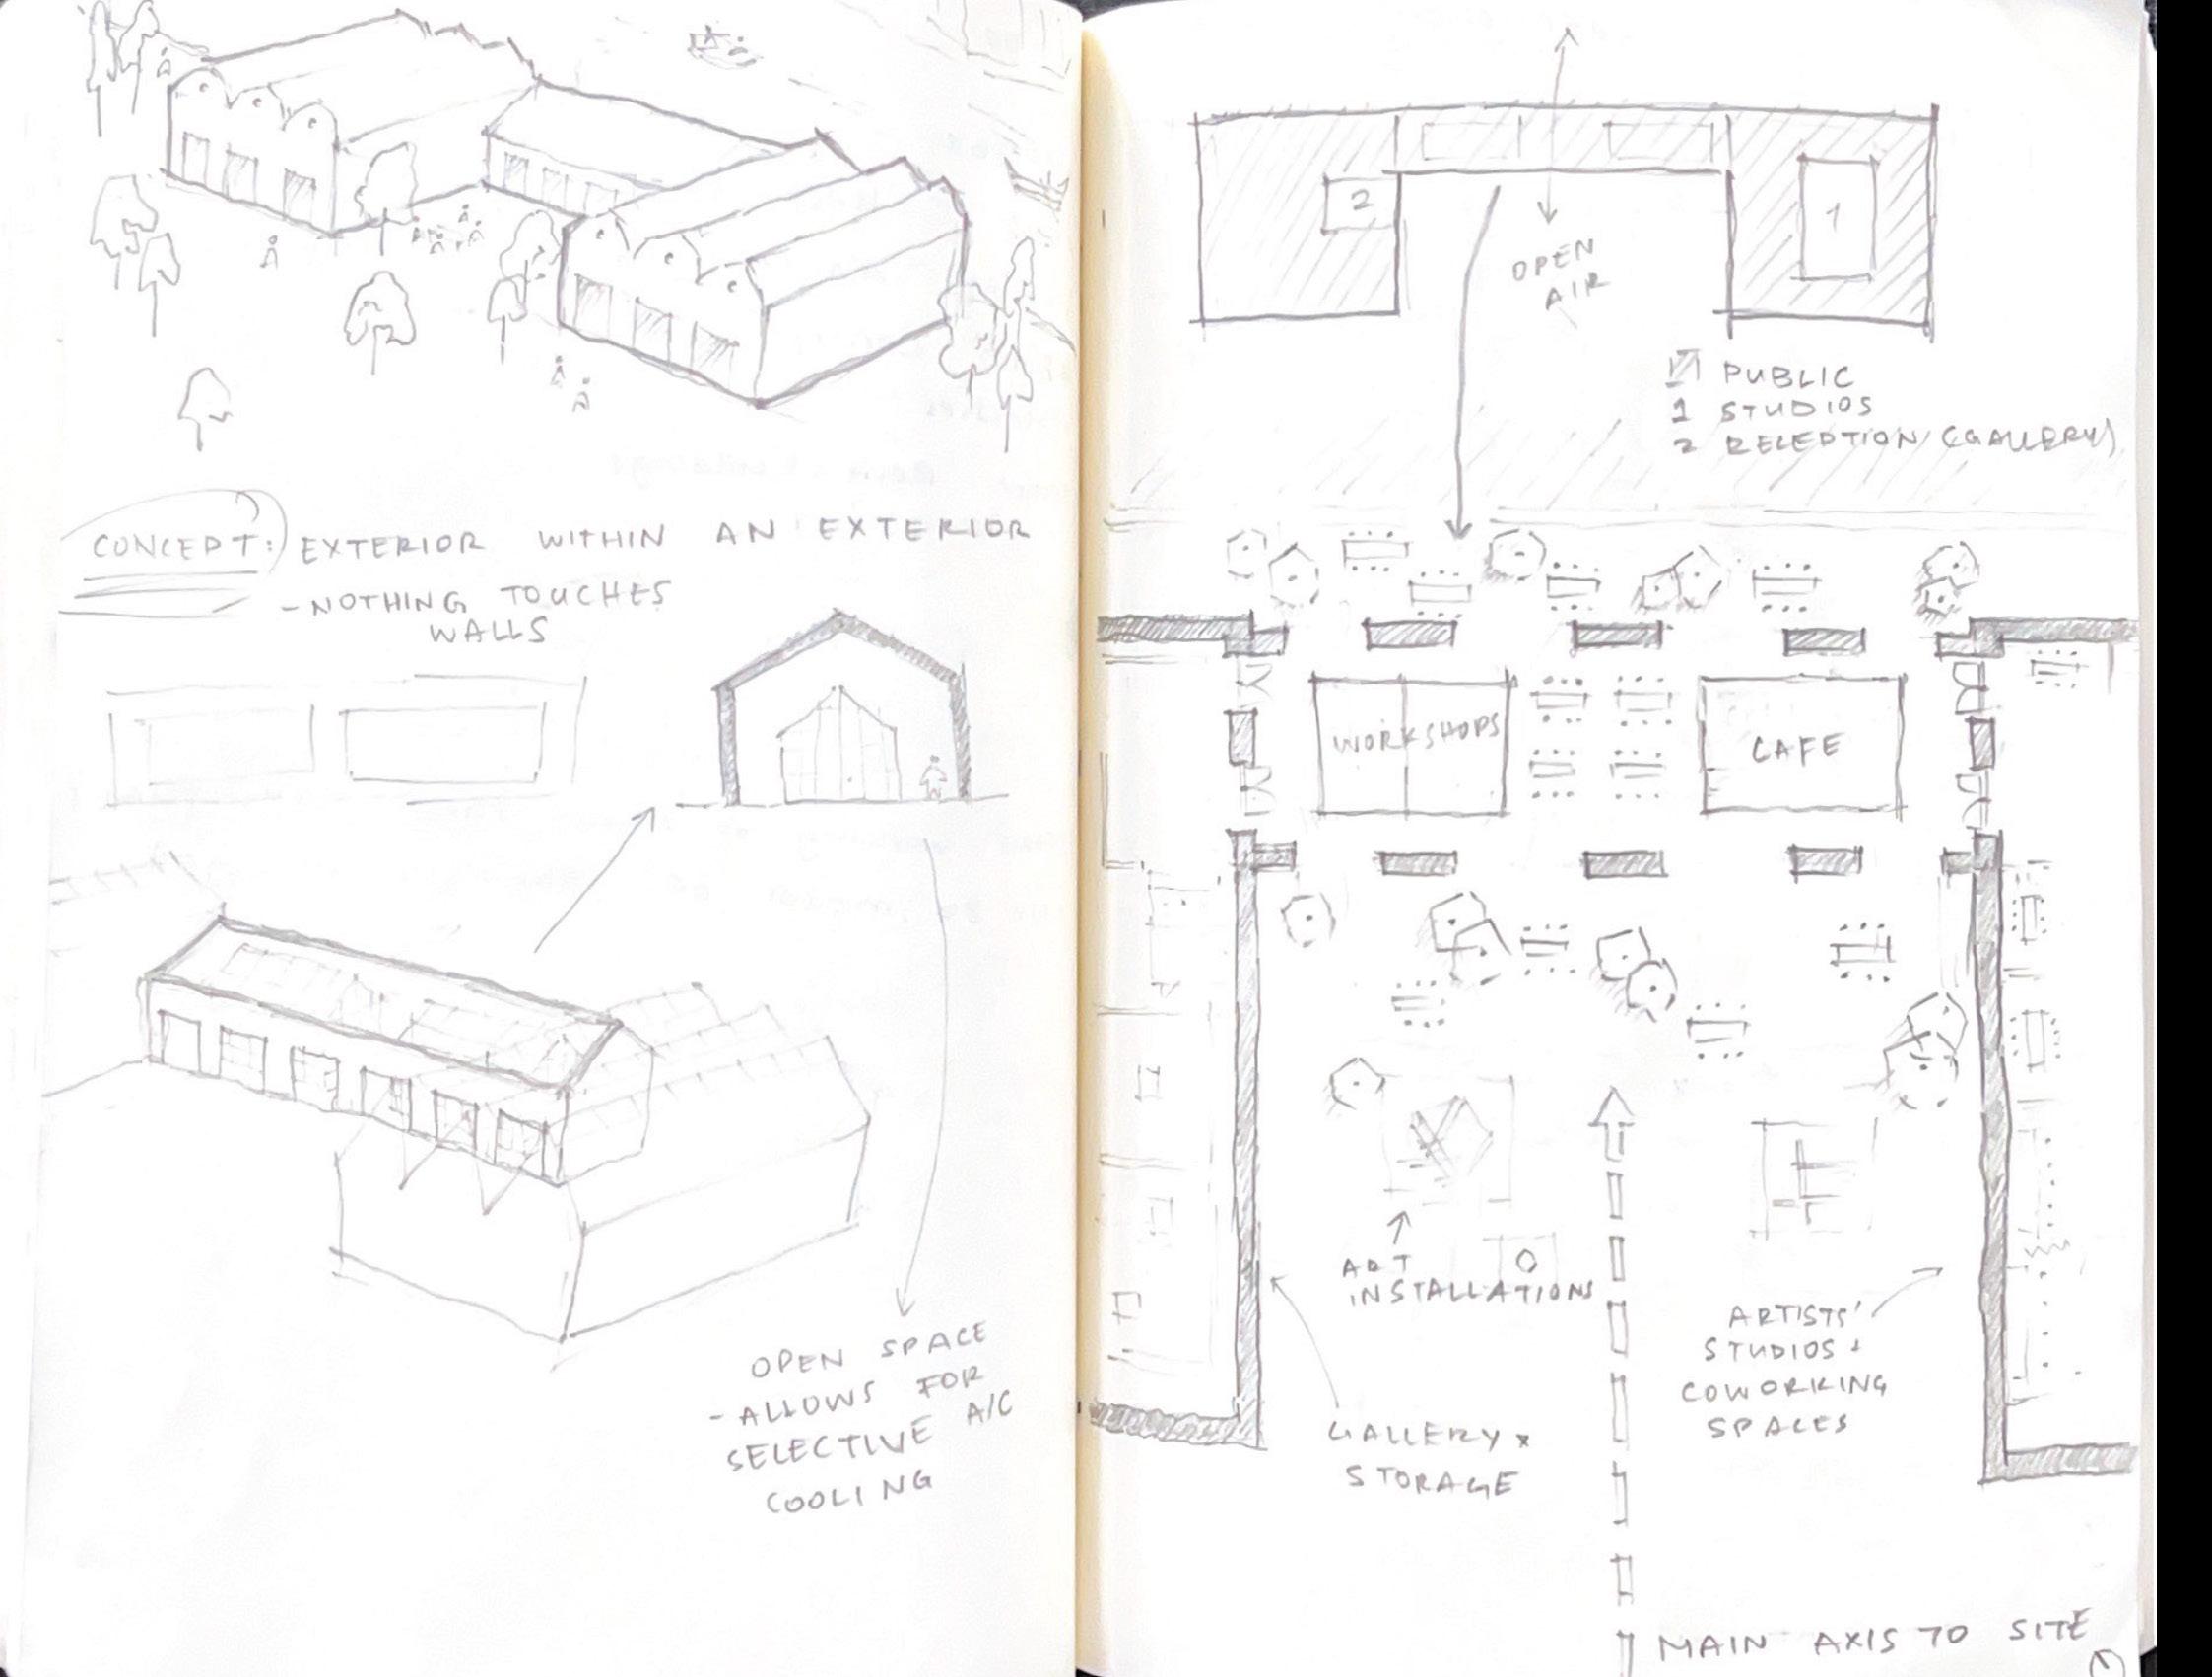 CONCEPT: EXTERIOR WITHIN AN EXTERIOR
- NOTHING TOUCHES
WALLS
OPEN SPACE
- ALLOWS FOR
SELECTIVE A/C
COOLING
2
1
OPEN
AIR
PUBLIC
1 STUDIOS
2 RECEPTION (GALLERY)
WORKSHOPS
CAFE
ART
INSTALLATIONS
GALLERY x
STORAGE
ARTISTS'
STUDIOS +
COWORKING
SPACES
MAIN AXIS TO SITE